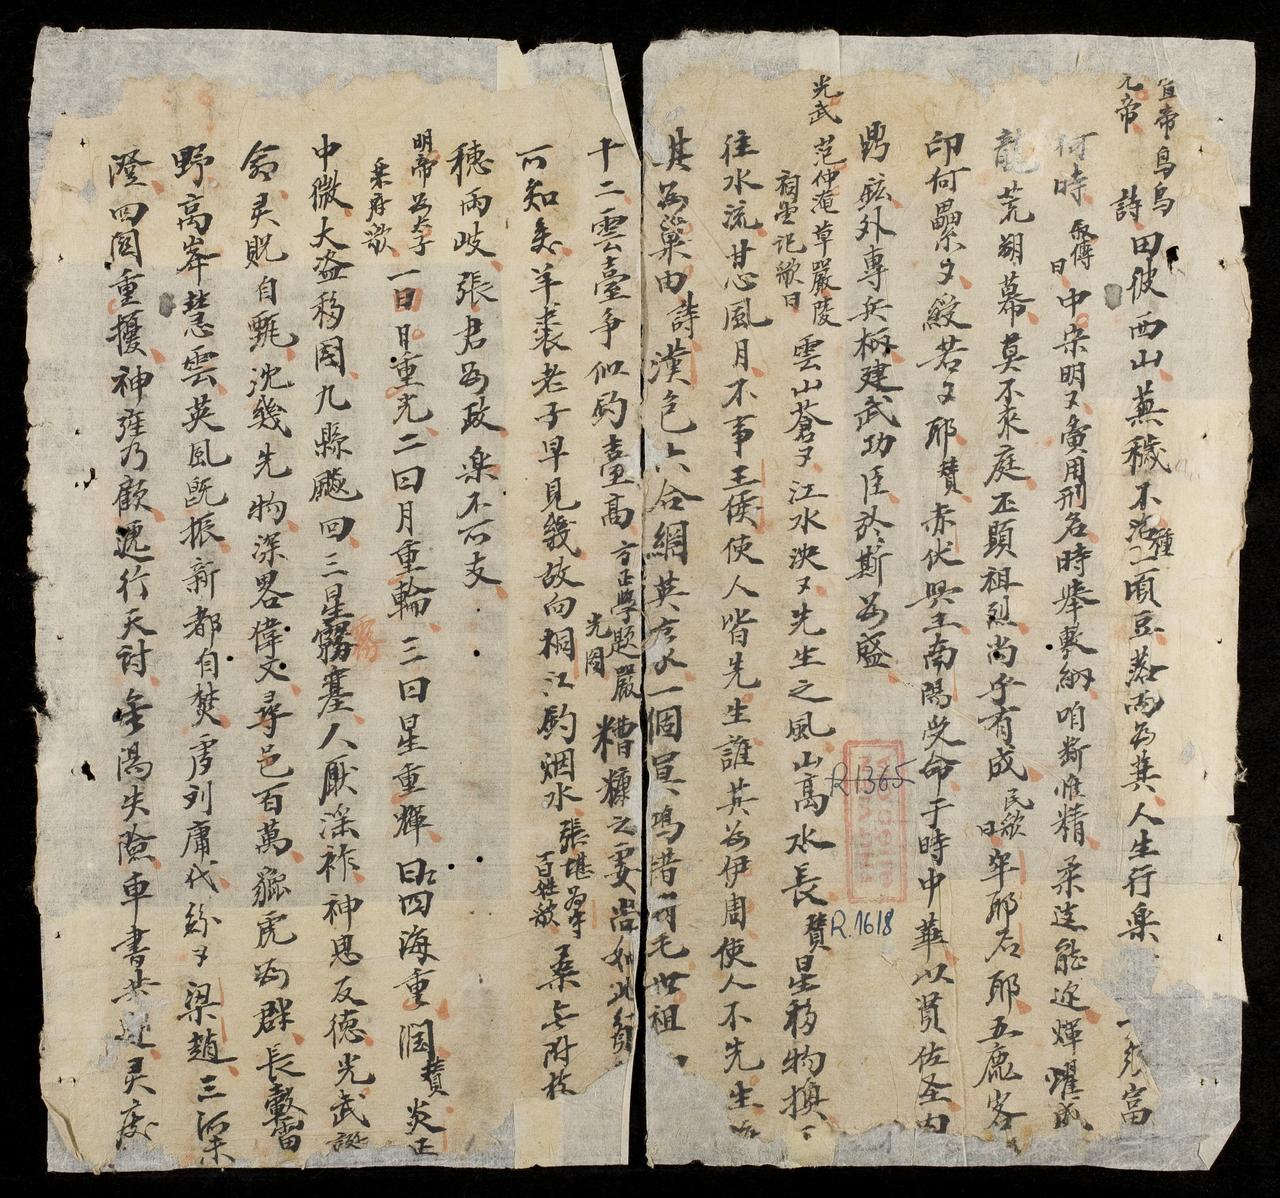 宣帝 烏烏
元帝 詩 田彼西山蕪穢不治種一頃豆落而為萁人生行樂 富
何時 叙傳曰 中宗明又夤用刑名時舉敷納咱断惟精柔遠能迩煇耀威
龍荒朔幕莫不來庭丕顯祖烈尚乎有成 民歌曰 牢耶石耶五鹿客
印何纍又綬若又耶 賛 赤伏興王南陽受命于時中華以賢佐圣内
鼎鉉外專兵柄建武功臣於斯為盛
光武 范仲淹草嚴陵祠堂記歌曰 雲山蒼又江水泱又先生之風山高水長 賛 星移物換
往水流甘心風月不事王侯使人皆先生誰其為伊周使人不先生
其為巢由 詩 漢包六合網英 一個冥鴻 世祖
十二雲臺争似釣臺高 方正學題嚴光圖 糟糠之妻尚如此 貧
可知矣羊裘老子早見幾故向桐江釣烟水 張堪為守百姓歌 桑無附枝
穗兩岐張君為政樂不可支
明帝為太子樂府歌 一日日重光二曰月重輪三曰星重輝四曰四海重潤 賛 炎正
中微大盗移國九縣飇回三星霧塞人厭淫祚神思反德光武誕
命灵貺自甄沈幾先物深畧偉文尋邑百萬貔虎為群長轂雷
野高峯慧雲英風既振新都自焚虔刘庸代紛又梁趙三河
澄四関重擾神旌乃顧遞行天討金湯失險車書共 灵慶
R 1365
R.1618